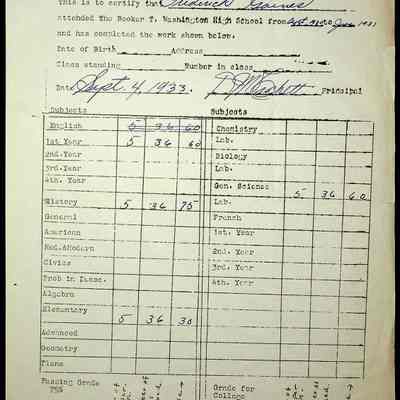 This is to certify that Fredrick Gaines
attended The Booker T. Washington High School from Sept. 1930 to June 1931
and has completed the work shown below.
Date of Birth Address
Class standing Number in class
Date Sept. 4, 1933. Principal
Subjects Subjects
English 5 36 60 Chemistry
1st. Year 5 36 60 Lab.
2nd. Year Biology
3rd. Year Lab.
4th. Year Gen. Science 5 36 60
History 5 36 75 Lab.
General French
American 1st. Year
Med. &Modern 2nd. Year
Civics 3rd. Year
Prob in Democ. 4th. Year
Algebra
Elementary 5 36 30
Advanced
Geometry
Plane
Passing Grade Grade for
75% College